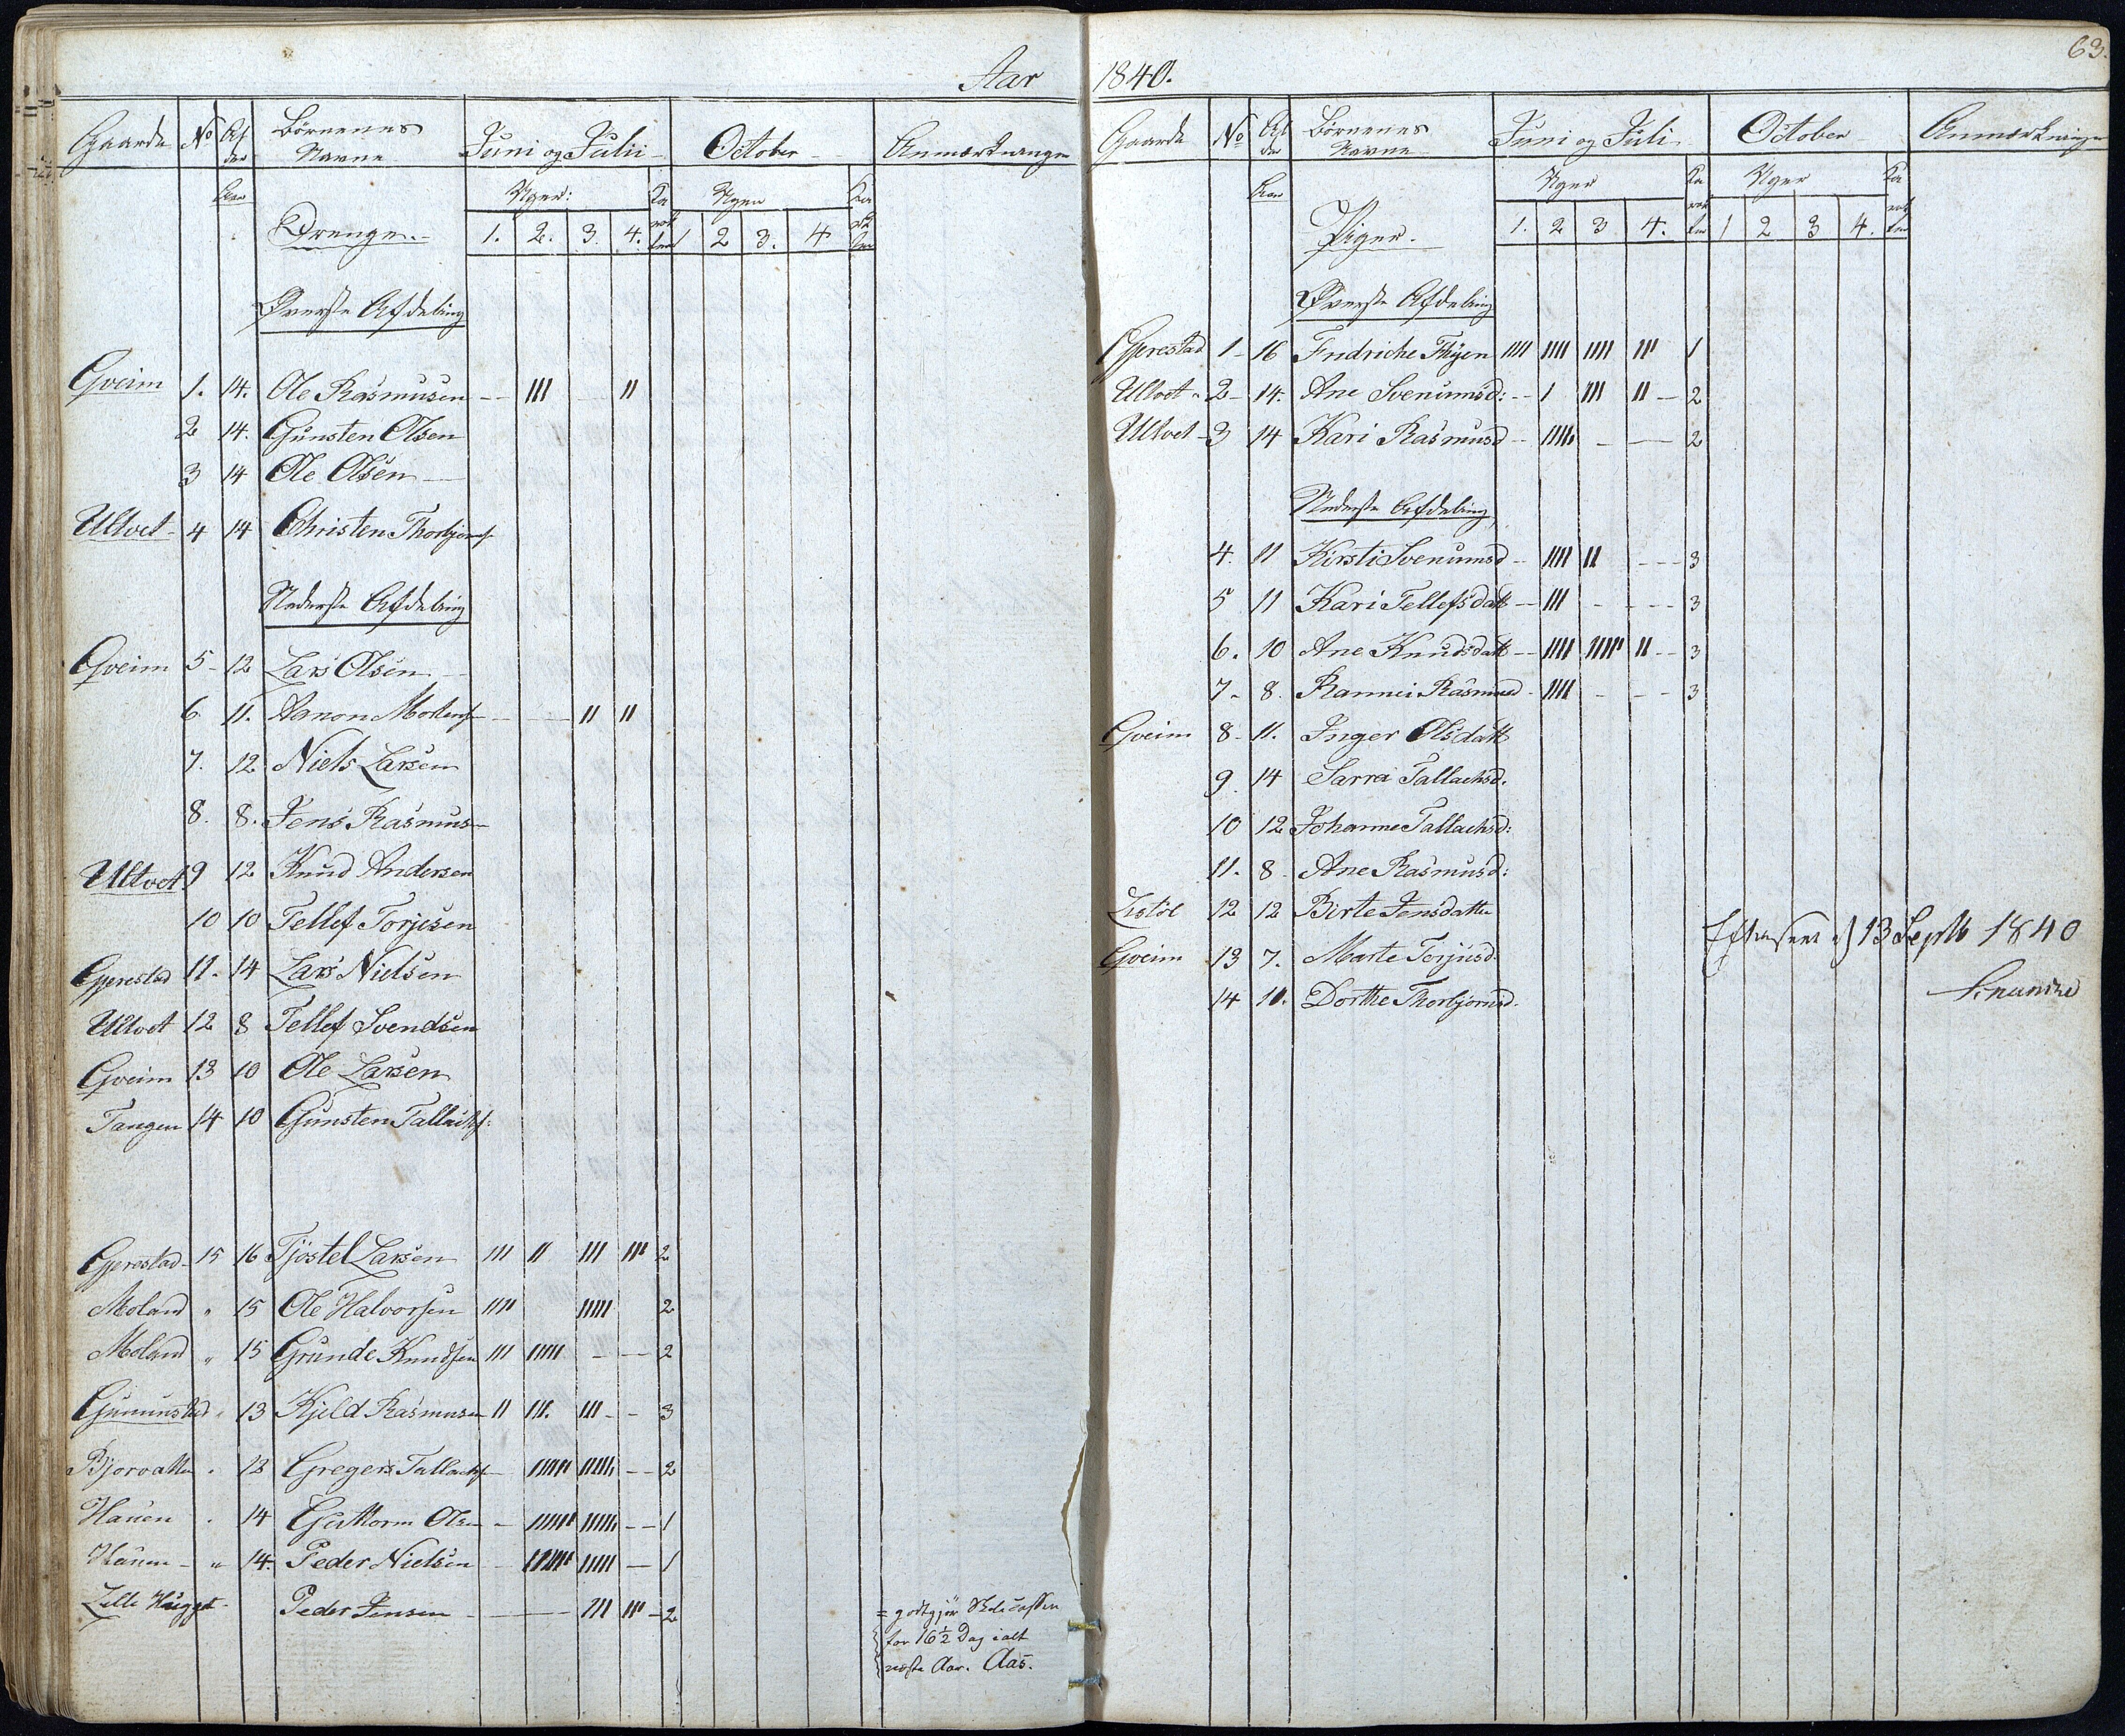 Aar 1840.
63.
Gaarde No Al der Børnenes Navne Juni og Julii October Anmærkninger
Aar Uger: Ka rak ter Uger Ka rak ter
Drenge. 1. 2. 3. 4. 1 2 3. 4
Øverste Afdeling
Gveim 1. 14. Ole Rasmusen - III II
2 14. Gunsten Olsen
3 14 Ole Olsen
Ultvet 4 14 Christen Thorbjørns.
Nederste Afdeling
Gveim 5 - 12 Lars Olsen
6 11. Aanon Mortens. - - II II
7. 12 Niels Larsen
8. 8. Jens Rasmus
Ultvet 9 12 Knud Andersen
10 10 Tellef Torjesen
Gjerestad 11. 14 Lars Nielsen
Ultvet 12 8 Tellef Svendsen
Gveim 13 10 Ole Larsen
Tangen 14 10 Gunsten Tallachs.
Gjerestad - 15 16 Tjøstel Larsen III II III III 2
Moland " 15 Ole Halvorsen IIII IIIII 2
Moland " 15 Grunde Knudsen III IIIII - - 2
Gumunstad " 13 Kjeld Rasmusen II III. III - - 3
Bjorvatten . 12 Gregers Tallachs. - IIIIII IIIIII - - 2
Hauen . 14 Guttorm Olsen - IIIIII IIIIII - - 1
Hauen - " 14. Peder Nielsen - IIIIII IIIII - 1
Lille Hugget - Peder Jensen - - III III - 2
= godtgjør Skolecassen
for 16 1/2 Dag i alt
næste Aar. Aas.
Gaarde No Al der Børnenes Navne Juni og Juli October Anmærkninger
Aar Uger Ka rak ter Uger Ka rak ter
Piger. 1. 2 3 4. 1 2 3 4.
Øverste Afdeling
Gjerestad 1 - 16 Fridriche Thygen IIII IIII IIII III 1
Ultvet " 2 - 14. Ane Svenumsd: - - I III II - 2
Ultvet - 3 14 Kari Rasmusd - - IIIII - - 2
Nederste Afdeling
4. 11 Kirsti Svenumsd - - IIII II - - - 3
5 11 Kari Tellefsdatt - III - - - - 3
6. 10 Ane Knudsdatt - IIII IIIII II - - 3
7 - 8. Rannei Rasmusd - IIII - - - 3
Gveim 8 - 11. Inger Olsdatt
9. 14 Sarra Tallachsd.
10 12 Johanne Tallachsd:
11. 8 Ane Rasmusd:
12 12 Birte Jensdatter
Gveim 13 7. Marte Torjusd.
14 10. Dorthe Thorbjornsd.
Efterseet d 13 Septb 1840